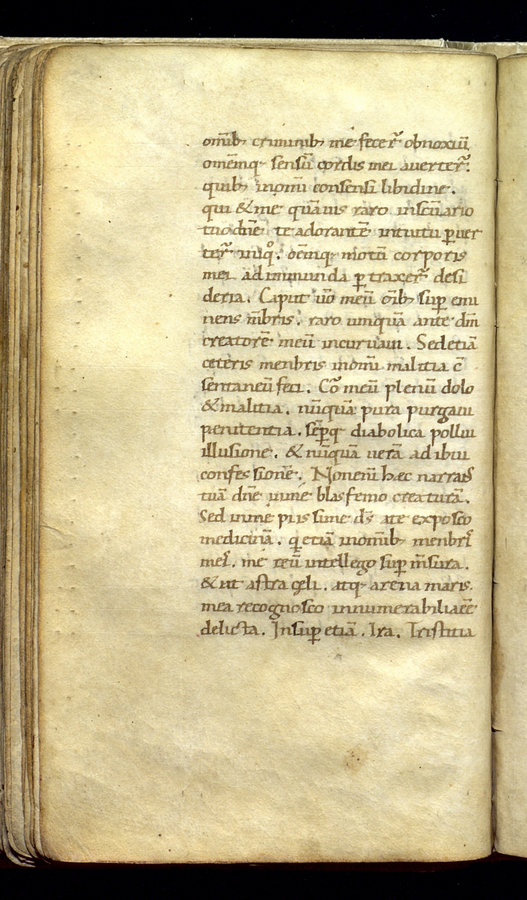 omīb; criminib; me fecer̄ obnoxiū.
omēmq; sensū cordis mei averter̄.
quib; inomī consensi libidine.
qui &me quāuis raro in scūario
tuo dn̄e te adorantē intuitu ꝑuer
ter̄ oc̄mq; motū corporis
mei ad inmunda ꝑtraxer̄ desi
deria. Caput ūo meū om̄ib; suꝑ emi
nens mēbris. raro umquā ante dm̄
creatorē meū incuruaui. Sed etiā
ceteris menbris inomī malitia c̄
sentaneū feci. Cor̄ meū plenū dolo
&malitia. nūquā pura purgaui
penitentia. sēꝑq; diabolica pollui
illusione. &nūquā uerā adibui
confessionē. Non enī hæc narraɼ̄
tuā dn̄e inme blasfemo creaturā.
Sed inme piissime ds̄ a te exposco
medicinā. q etiā inomīb; menbris
meis. me reū intellego suꝑ m̄surā.
&ut astra cęli. atq; arena maris.
mea recognosco innumerabilia eē
delicta. Insuꝑ etiā. Ira. Tristitia